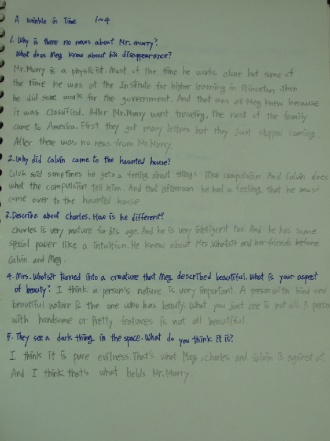 A Wrinkle in Time 1~4
1. Why is there no news about Mr. Murry?
What does Meg know about his disappearance?
Mr. Murry is a physicist. Most of the time he works alone but some of
the time he was at the Institute for higher learning in Princeton. Then
he did some work for the government. And that was all Meg knew because
it was classified. After Mr. Murry went traveling, the rest of the family
came to America. First they got many letters but they just stopped coming.
After there was no news from Mr. Murry.
2. Why did Calvin came to the haunted house?
Calvin said sometimes he gets a feeling about things like compulsion. And Calvin does
what the compulsion tell him. And that afternoon he had a feeling that he must
came over to the haunted house.
3. Describe about Charles. How is he different?
Charles is very mature for his age. And he is very intelligent too. And he has some
special power like a intuition. He know about Mrs Whatsit and her friends before
Calvin and Meg.
4. Mrs. Whatsit turned into a creature that Meg described beautiful. What is your aspect
of beauty? I think a person's nature is very important. A person with kind and
beautiful nature is the one who has beauty. What you just see is not all. A person
with handsome or pretty features is not all beautiful.
5. They see a dark thing in the space. What do you think it is?
I think it is pure evilness. That's what Meg, Charles and Calvin is against of.
And I think that's what holds Mr. Murry.